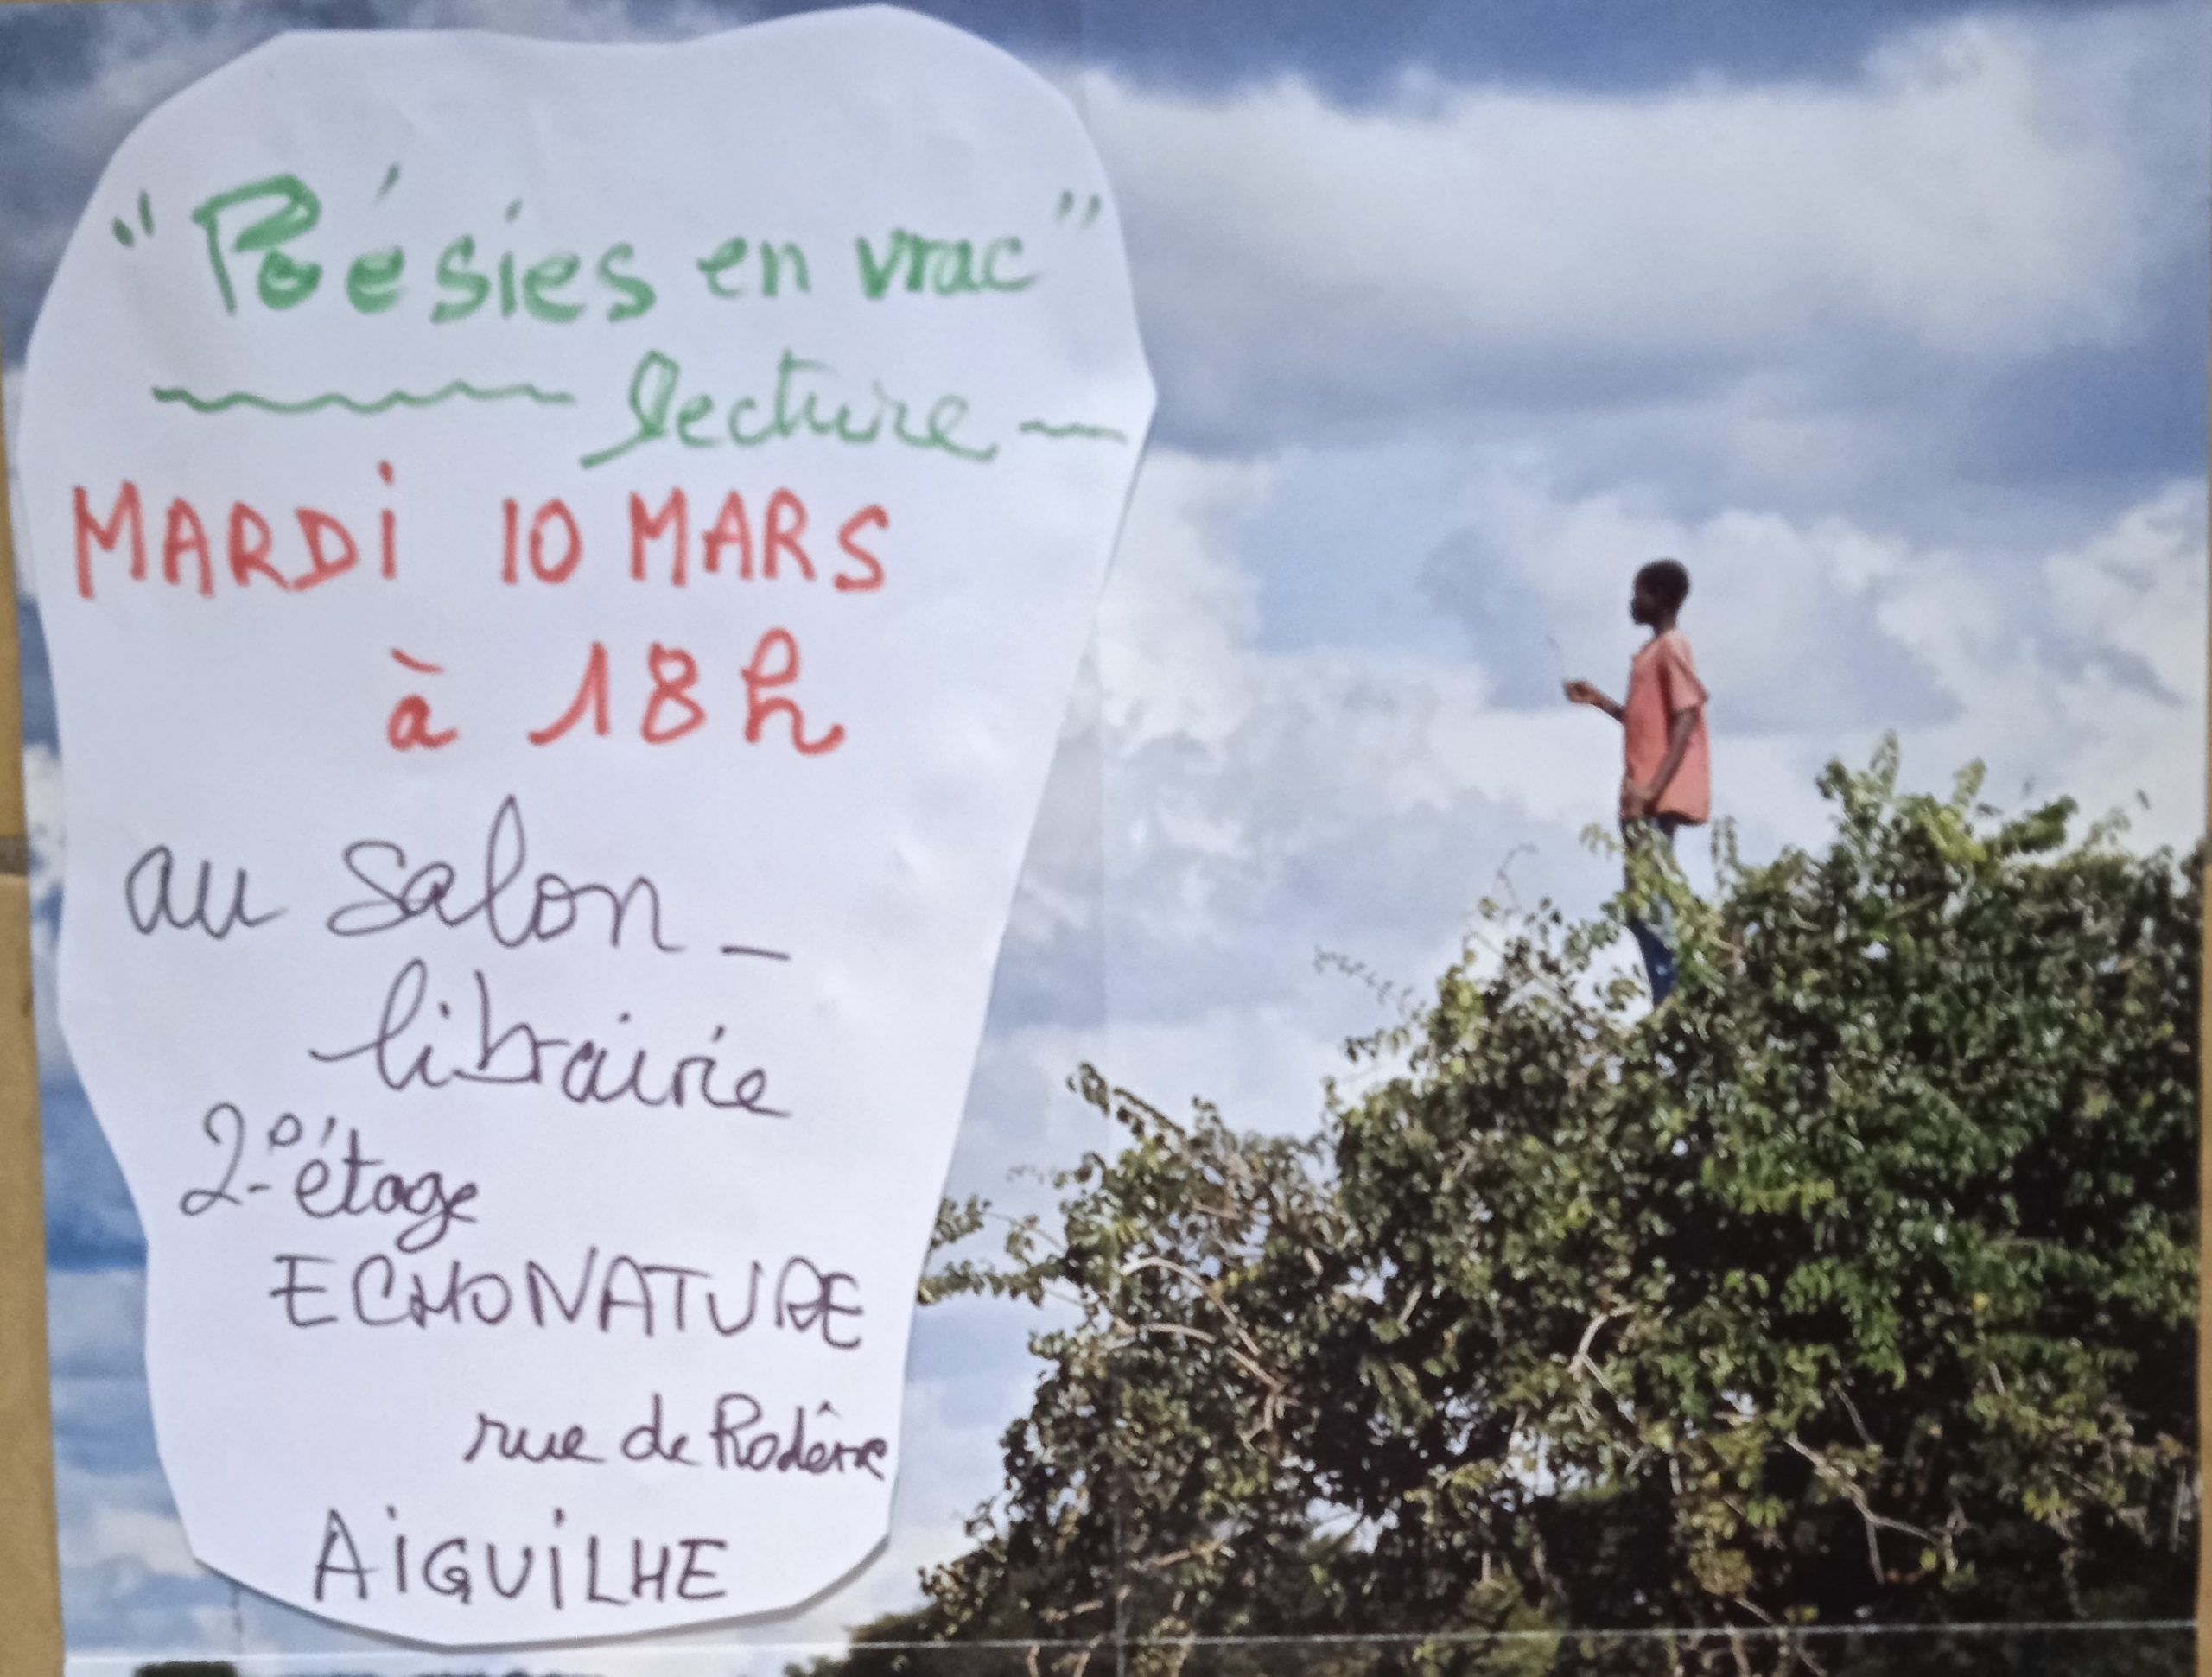 "Poésies en vrac"
lecture
MARDi 10 MARS
à 18h
au salon-
librairie
2e étage
ECHONATURE
rue de Rodène
AiGUiLHE